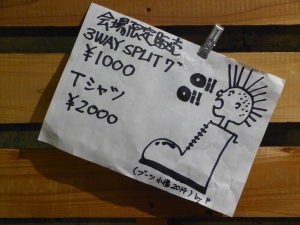 会場限定販売
3WAY SPLIT 7"
¥1000
Tシャツ
¥2000
Oi!
Oi!
(ブーツ小僧2014) by P